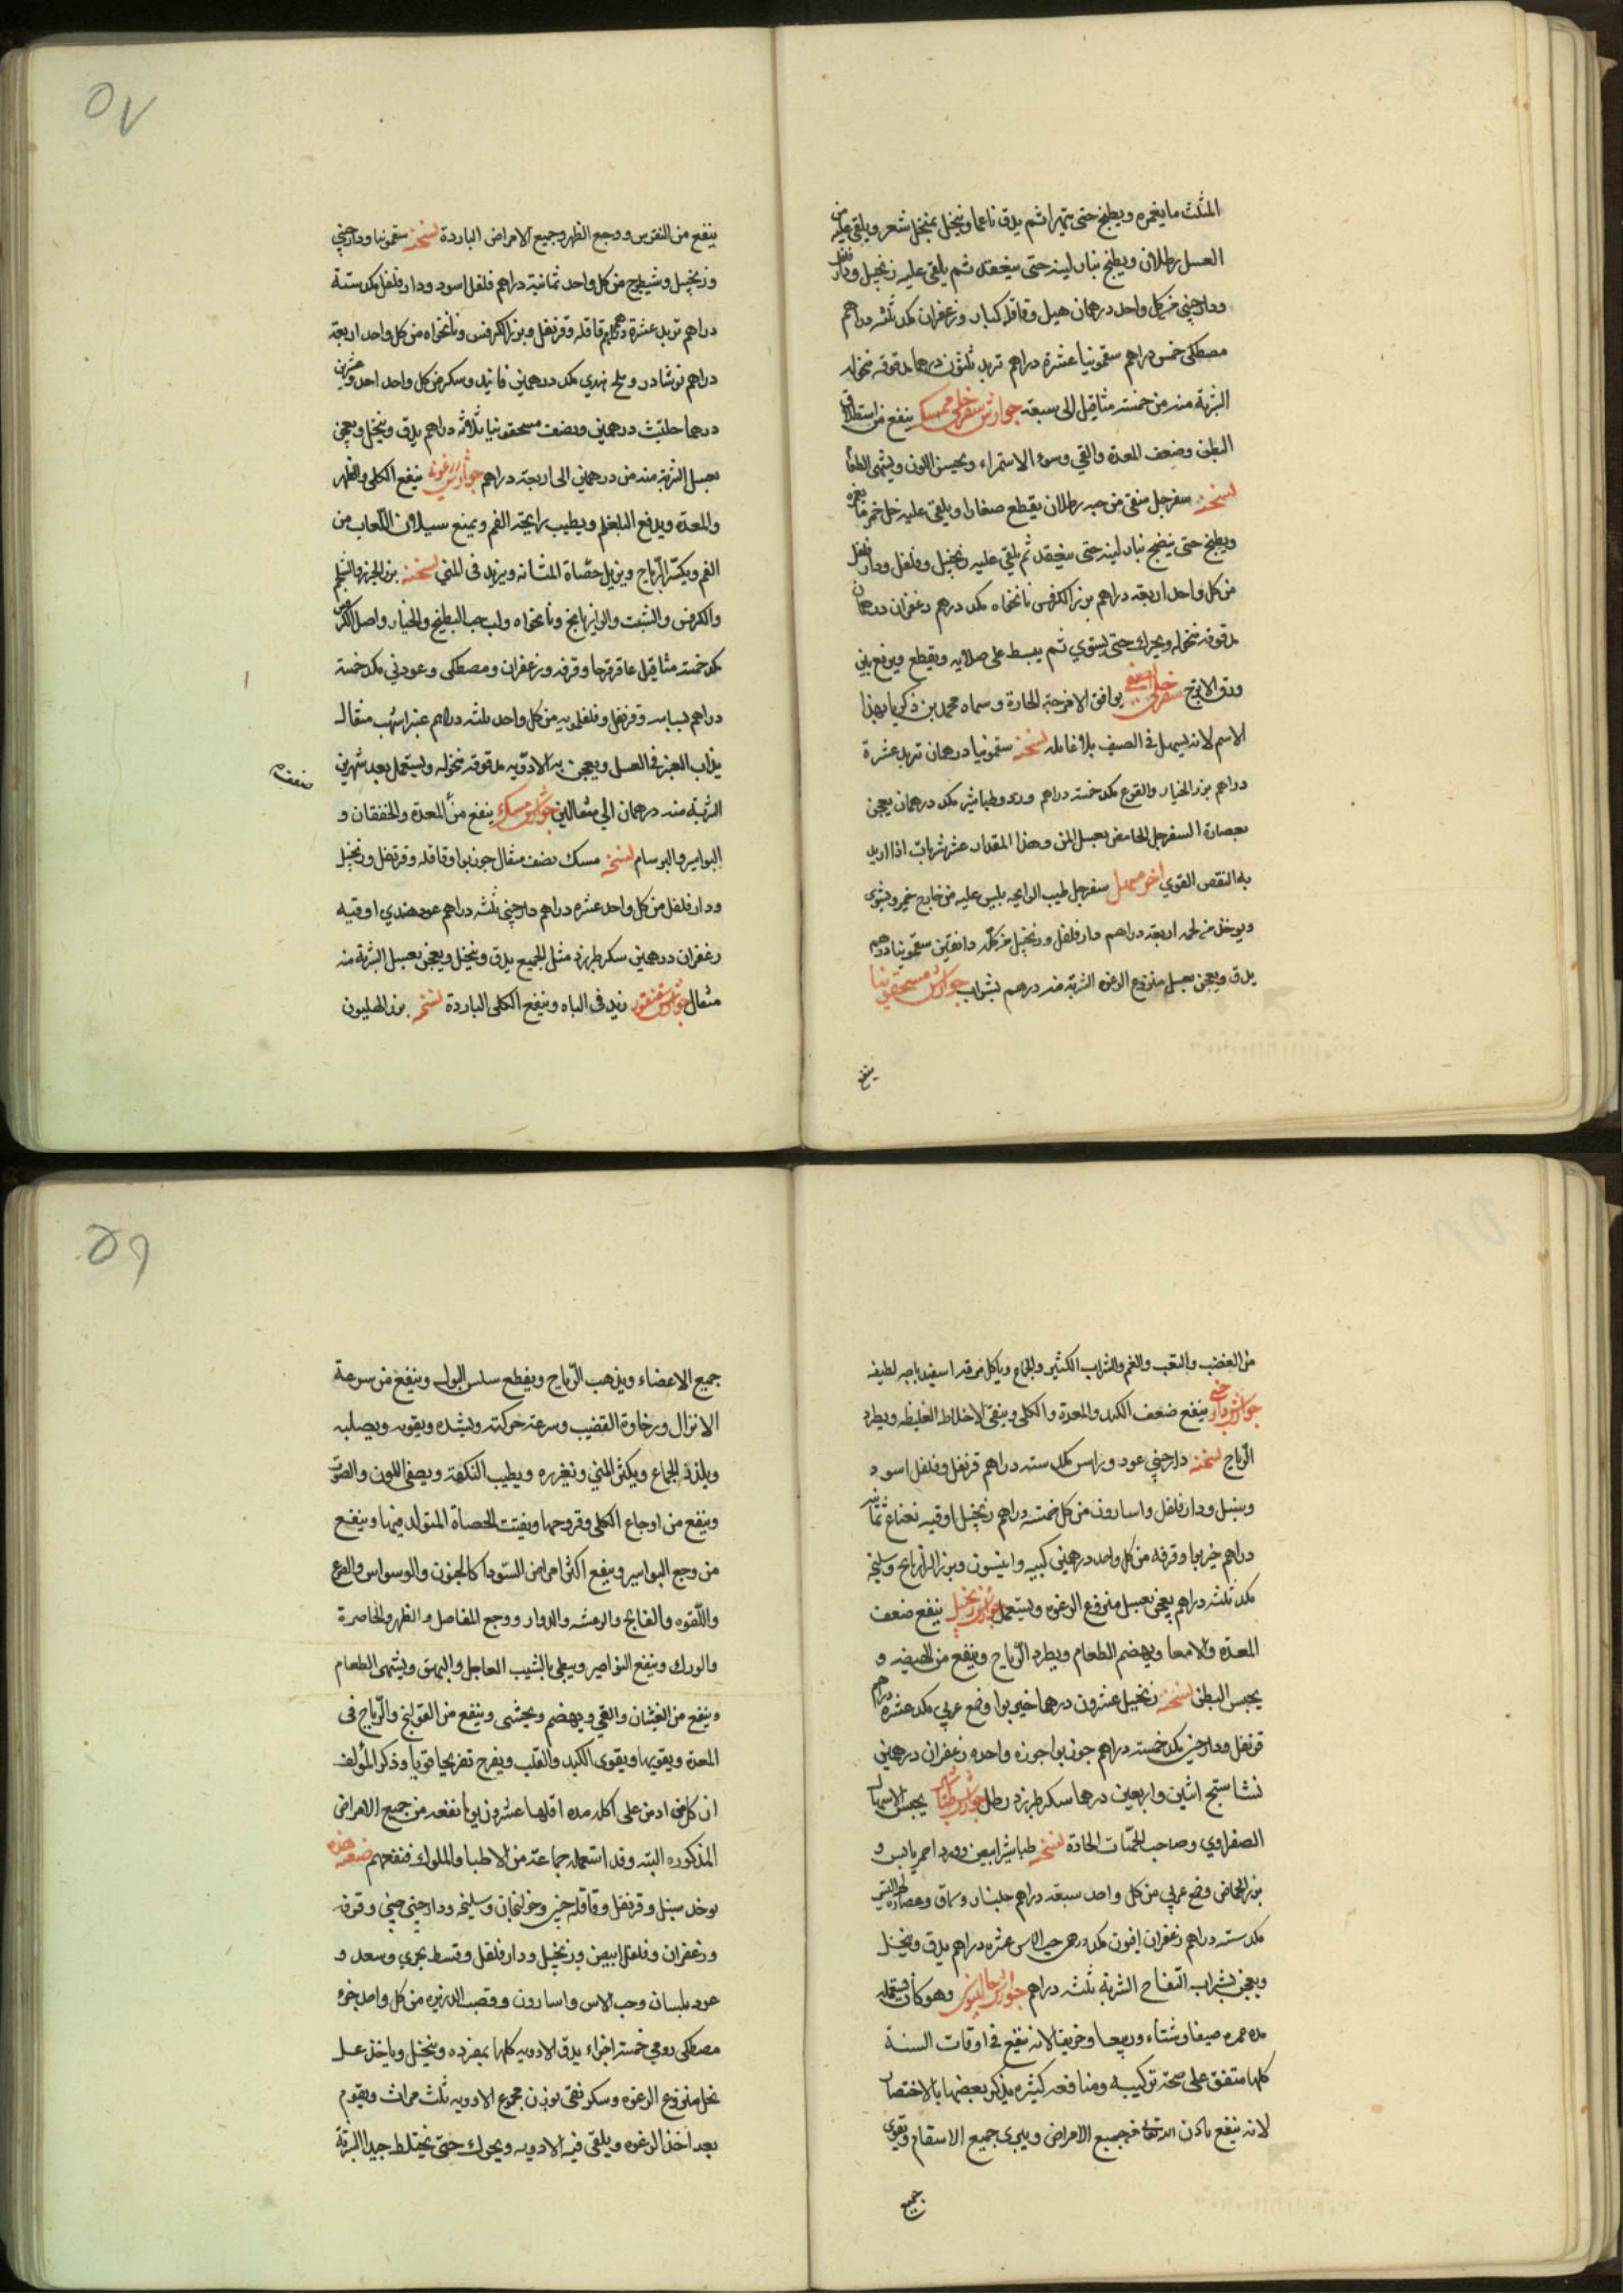 المثلث ما يغمره ويطبخ حتى يتهرا ثم يدق ناعما وينخل بمنخل شعر ويلقى عليه من
العسل رطلان ويطبخ بنار لينه حتى ينعقد ثم يلقى عليه زنجبيل ودار فلفل
ودارچيني من كل واحد درهمان هيل وقاقله كبار وزعفران مكد ثلثه دراهم
مصطكى خمس دراهم سقمونيا عشرة دراهم تربد ثلثون درهما مدقوقه منخوله
الشربة منه من خمسة مثاقيل الى سبعة جوارش سفرجلي ممسك ينفع من استطلاق
البطن وضعف المعدة والقي وسوء الاستمراء ويحسن اللون ويشهى الطعام
نسخته سفرجل منقى من حبه رطلان يقطع صغارا ويلقى عليه خل خمر ما يغمره
ويطبخ حتى ينضج بنار لينه حتى ينعقد ثم يلقي عليه زنجبيل وفلفل ودار فلفل
من كل واحد اربعة دراهم بزر الكرفس نانخواه مكد درهم زعفران درهمان
مدقوقه منخوله ويحرك حتى يستوي ثم يبسط على صلايه ويقطع ويرفع بين
ورق الاترج سفرجلي صيفي يوافق الامزجة الحارة وسماه محمد بن زكريا بهذا
الاسم لانه يسهل فى الصيف بلا غايله نسخته سقمونيا درهمان تربد عشرة
دراهم بزر الخيار والقرع مكد خمسة دراهم ورد وطباشير مكد درهمان يعجن
بعصارة السفرجل الحامض بعسل المن وهذا المقدار عشر شربات اذا اريد
به النقص القوي اخر مسهل سفرجل طيب الرايحه يلبس عليه من خارج خمير ويشوى
ويوخذ من لحمه اربعة دراهم دار فلفل وزنجبيل من كل دانقين سقمونيا درهم
يدق ويعجن بعسل منزوع الرغوه الشربة منه درهم بشراب جوارش مسحقونيا
ينفع
٥٧
ينفع من النقرس ووجع الظهر وجميع الامراض الباردة نسخته سقمونيا ودارچيني
وزنجبيل وشيطرج من كل واحد ثمانية دراهم فلفل اسود ودار فلفل مكد ستة
دراهم تربد عشرة دراهم قاقله وقرنفل وبزر الكرفس ونانخواه من كل واحد اربعة
دراهم نوشادر وملح هندي مكد درهمين فانيد وسكر من كل واحد احد وعشرين
درهما حلتيت درهمين ونصف مسحقونيا ثلاثه دراهم يدق وينخل ويعجن
بعسل الشربة منه من درهمين الى اربعة دراهم جوارش زرعوني ينفع الكلى والظهر
والمعدة ويدفع البلغم ويطيب رايحة الفم ويمنع سيلان اللعاب من
الفم ويكسر الرياح ويزيل حصاة المثانه ويزيد فى المني نسخته بزر الجزر والشلجم
والكرفس والشبت والرازيانج ونانخواه ولب حب البطيخ والخيار واصل الكرفس
مكد خمسة مثاقيل عاقرقرحا وقرفه وزعفران ومصطكى وعود ني مكد خمسة
دراهم بسباسه وقرنفل وفلفلمويه من كل واحد ثلثه دراهم عنبر اشهب مثقال
يذاب العنبر فى العسل ويعجن به الادويه مدقوقه منخوله ويستعمل بعد شهرين
الشربة منه درهمان الى مثقالين جوارش مسك ينفع من المعدة والخفقان و
البواسير والبرسام نسخته مسك نصف مثقال جوزبوا وقاقله وقرنفل وزنجبيل
ودار فلفل من كل واحد عشره دراهم دارچيني ثلثه دراهم عود هندي اوقيه
زعفران درهمين سكر طبرزد مثل الجميع يدق وينخل ويعجن بعسل الشربة منه
مثقال جوارش سقنقور يزيد فى الباه وينفع الكلى الباردة نسخته بزر الهليون
من الغضب والتعب والغم والشراب الكثير والجماع وياكل مرقة اسفيدباجه لطيفه
جوارش دارچيني ينفع ضعف الكبد والمعدة والكلى وينقي الاخلاط الغليظه ويطرد
الرياح نسخته دارچيني عود وراسن مكد سته دراهم قرنفل وفلفل اسود
وسنبل ودار فلفل واسارون من كل خمسة دراهم زنجبيل اوقيه نعناع ثمانيه
دراهم خيربوا وقرفه من كل واحد درهمين كبيه وانيسون وبزر الرازيانج وسليخه
مكد ثلثه دراهم يعجن بعسل منزوع الرغوه ويستعمل جوارش زنجبيل ينفع ضعف
المعدة والامعا ويهضم الطعام ويطرد الرياح وينفع من الهيضه و
يحبس البطن نسخته زنجبيل عشرون درهما خيربوا وصمغ عربي مكد عشره دراهم
قرنفل ودارچيني مكد خمسه دراهم جوزبوا جوزه واحده زعفران درهمين
نشاستج اثنين واربعين درهما سكر طبرزد رطل جوارش طباشير يحبس الاسهال
الصفراوي وصاحب الحميات الحادة نسخته طباشير ابيض وورد احمر يابس و
بزر الحماض وصمغ عربي من كل واحد سبعة دراهم جلنار وسماق وعصارة لحية التيس
مكد سته دراهم زعفران افيون مكد درهم حب الاس عشره دراهم يدق وينخل
ويعجن بشراب التفاح الشربة ثلثه دراهم جوارش جالينوس وهو كان يستعمله
مده عمره صيفا وشتاء وربيعا وخريفا لانه ينفع فى اوقات السنة
كلها متفق على صحة تركيبه ومنافعه كثيره يذكر بعضها بالاختصار
لانه ينفع باذن الله تعالى من جميع الامراض ويبرى جميع الاسقام ويقوى
جميع
٥٩
جميع الاعضاء ويذهب الرياح ويقطع سلس البول وينفع من سرعة
الانزال ورخاوة القضيب وسرعة حركته ويشده ويقويه ويصلبه
ويلذذ الجماع ويكثر المني ويغزره ويطيب النكهة ويصفي اللون والصوت
وينفع من اوجاع الكلى وقروحها ويفتت الحصاة المتولد فيها وينفع
من وجع البواسير وينفع اكثر امراض السودا كالجنون والوسواس والصرع
واللقوه والفالج والرعشه والدوار ووجع المفاصل والظهر والخاصرة
والورك وينفع النواصير ويبطي بالشيب العاجل والبهق ويشهى الطعام
وينفع من الغثيان والقي ويهضم ويجشى وينفع من القولنج والرياح فى
المعدة ويقويها ويقوى الكبد والقلب ويفرح تفريحا قويا وذكر المؤلف
ان كل من ادمن على اكله مده اقلها عشرون يوما نفعه من جميع الامراض
المذكوره البته وقد استعمله جماعة من الاطبا والملوك فنفعهم صفته هذه
يوخذ سنبل وقرنفل وقاقله وخولنجان وسليخه ودارچيني چيني وقرفه
وزعفران وفلفل ابيض وزنجبيل ودار فلفل وقسط بحري وسعد و
عود بلسان وحب الاس واسارون وقصب الذريره من كل واحد جزء
مصطكى رومي خمسة اجزاء يدق الادويه كلها بمفرده وينخل وياخذ عسل
نحل منزوع الرغوه وسكر نقي بوزن مجموع الادويه ثلث مرات ويقوم
بعد اخذ الرغوه ويلقى فيه الادويه ويحرك حتى يختلط جيدا الشربة